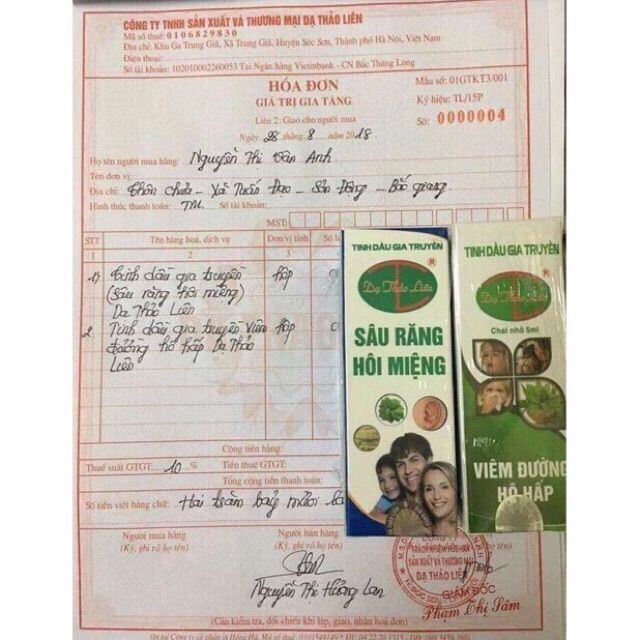 CÔNG TY TNHH SẢN XUẤT VÀ THƯƠNG MẠI DẠ THẢO LIÊN
Mã số thuế: 0106829830
Địa chỉ: Khu Ga Trung Giã, Xã Trung Giã, Huyện Sóc Sơn, Thành phố Hà Nội, Việt Nam
Điện thoại:
Số tài khoản: 102010002260053 Tại Ngân hàng Vietinbank - CN Bắc Thăng Long
HÓA ĐƠN
GIÁ TRỊ GIA TĂNG
Liên 2: Giao cho người mua
Ngày 28 tháng 8 năm 2018
Mẫu số: 01GTKT3/001
Ký hiệu: TL/15P
Số: 0000004
Họ tên người mua hàng: Nguyễn Thị Vân Anh
Tên đơn vị:
Địa chỉ: Thôn chùa - Xã Tuấn Đạo - Sơn Động - Bắc giang
Hình thức thanh toán: TM. Số tài khoản:
MST:
STT Tên hàng hoá, dịch vụ Đơn vị tính Số
1 2 3
1) Tinh dầu gia truyền hộp
(Sâu răng hôi miệng)
Dạ Thảo Liên
2. Tinh dầu gia truyền viêm hộp
đường hô hấp Dạ Thảo
Liên
Cộng tiền hàng:
Thuế suất GTGT: 10 % Tiền thuế GTGT:
Tổng cộng tiền thanh toán:
Số tiền viết bằng chữ: Hai trăm bảy mươi
Người mua hàng
(Ký, ghi rõ họ tên)
Người bán hàng
(Ký, ghi rõ họ tên)
Nguyễn Thị Hương Lan
TINH DẦU GIA TRUYỀN
Dạ Thảo Liên
®
SÂU RĂNG
HÔI MIỆNG
TINH DẦU GIA TRUYỀN
Dạ Thảo Liên
®
Chai nhỏ 5ml
VIÊM ĐƯỜNG
HÔ HẤP
CÔNG TY
TRÁCH NHIỆM HỮU HẠN
SẢN XUẤT VÀ THƯƠNG MẠI
DẠ THẢO LIÊN
GIÁM ĐỐC
Phạm Thị Sâm
(Cần kiểm tra, đối chiếu khi lập, giao, nhận hoá đơn)